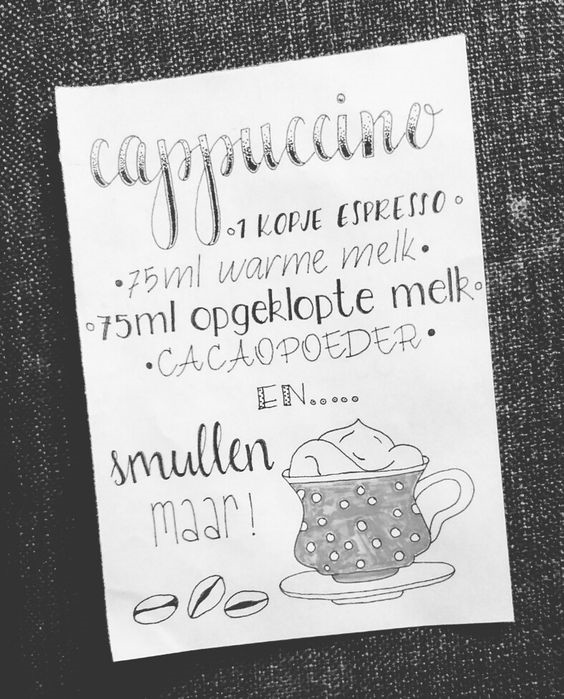 cappuccino
1 KOPJE ESPRESSO
75ml warme melk
75ml opgeklopte melk
CACAOPOEDER
EN.....
smullen
maar!